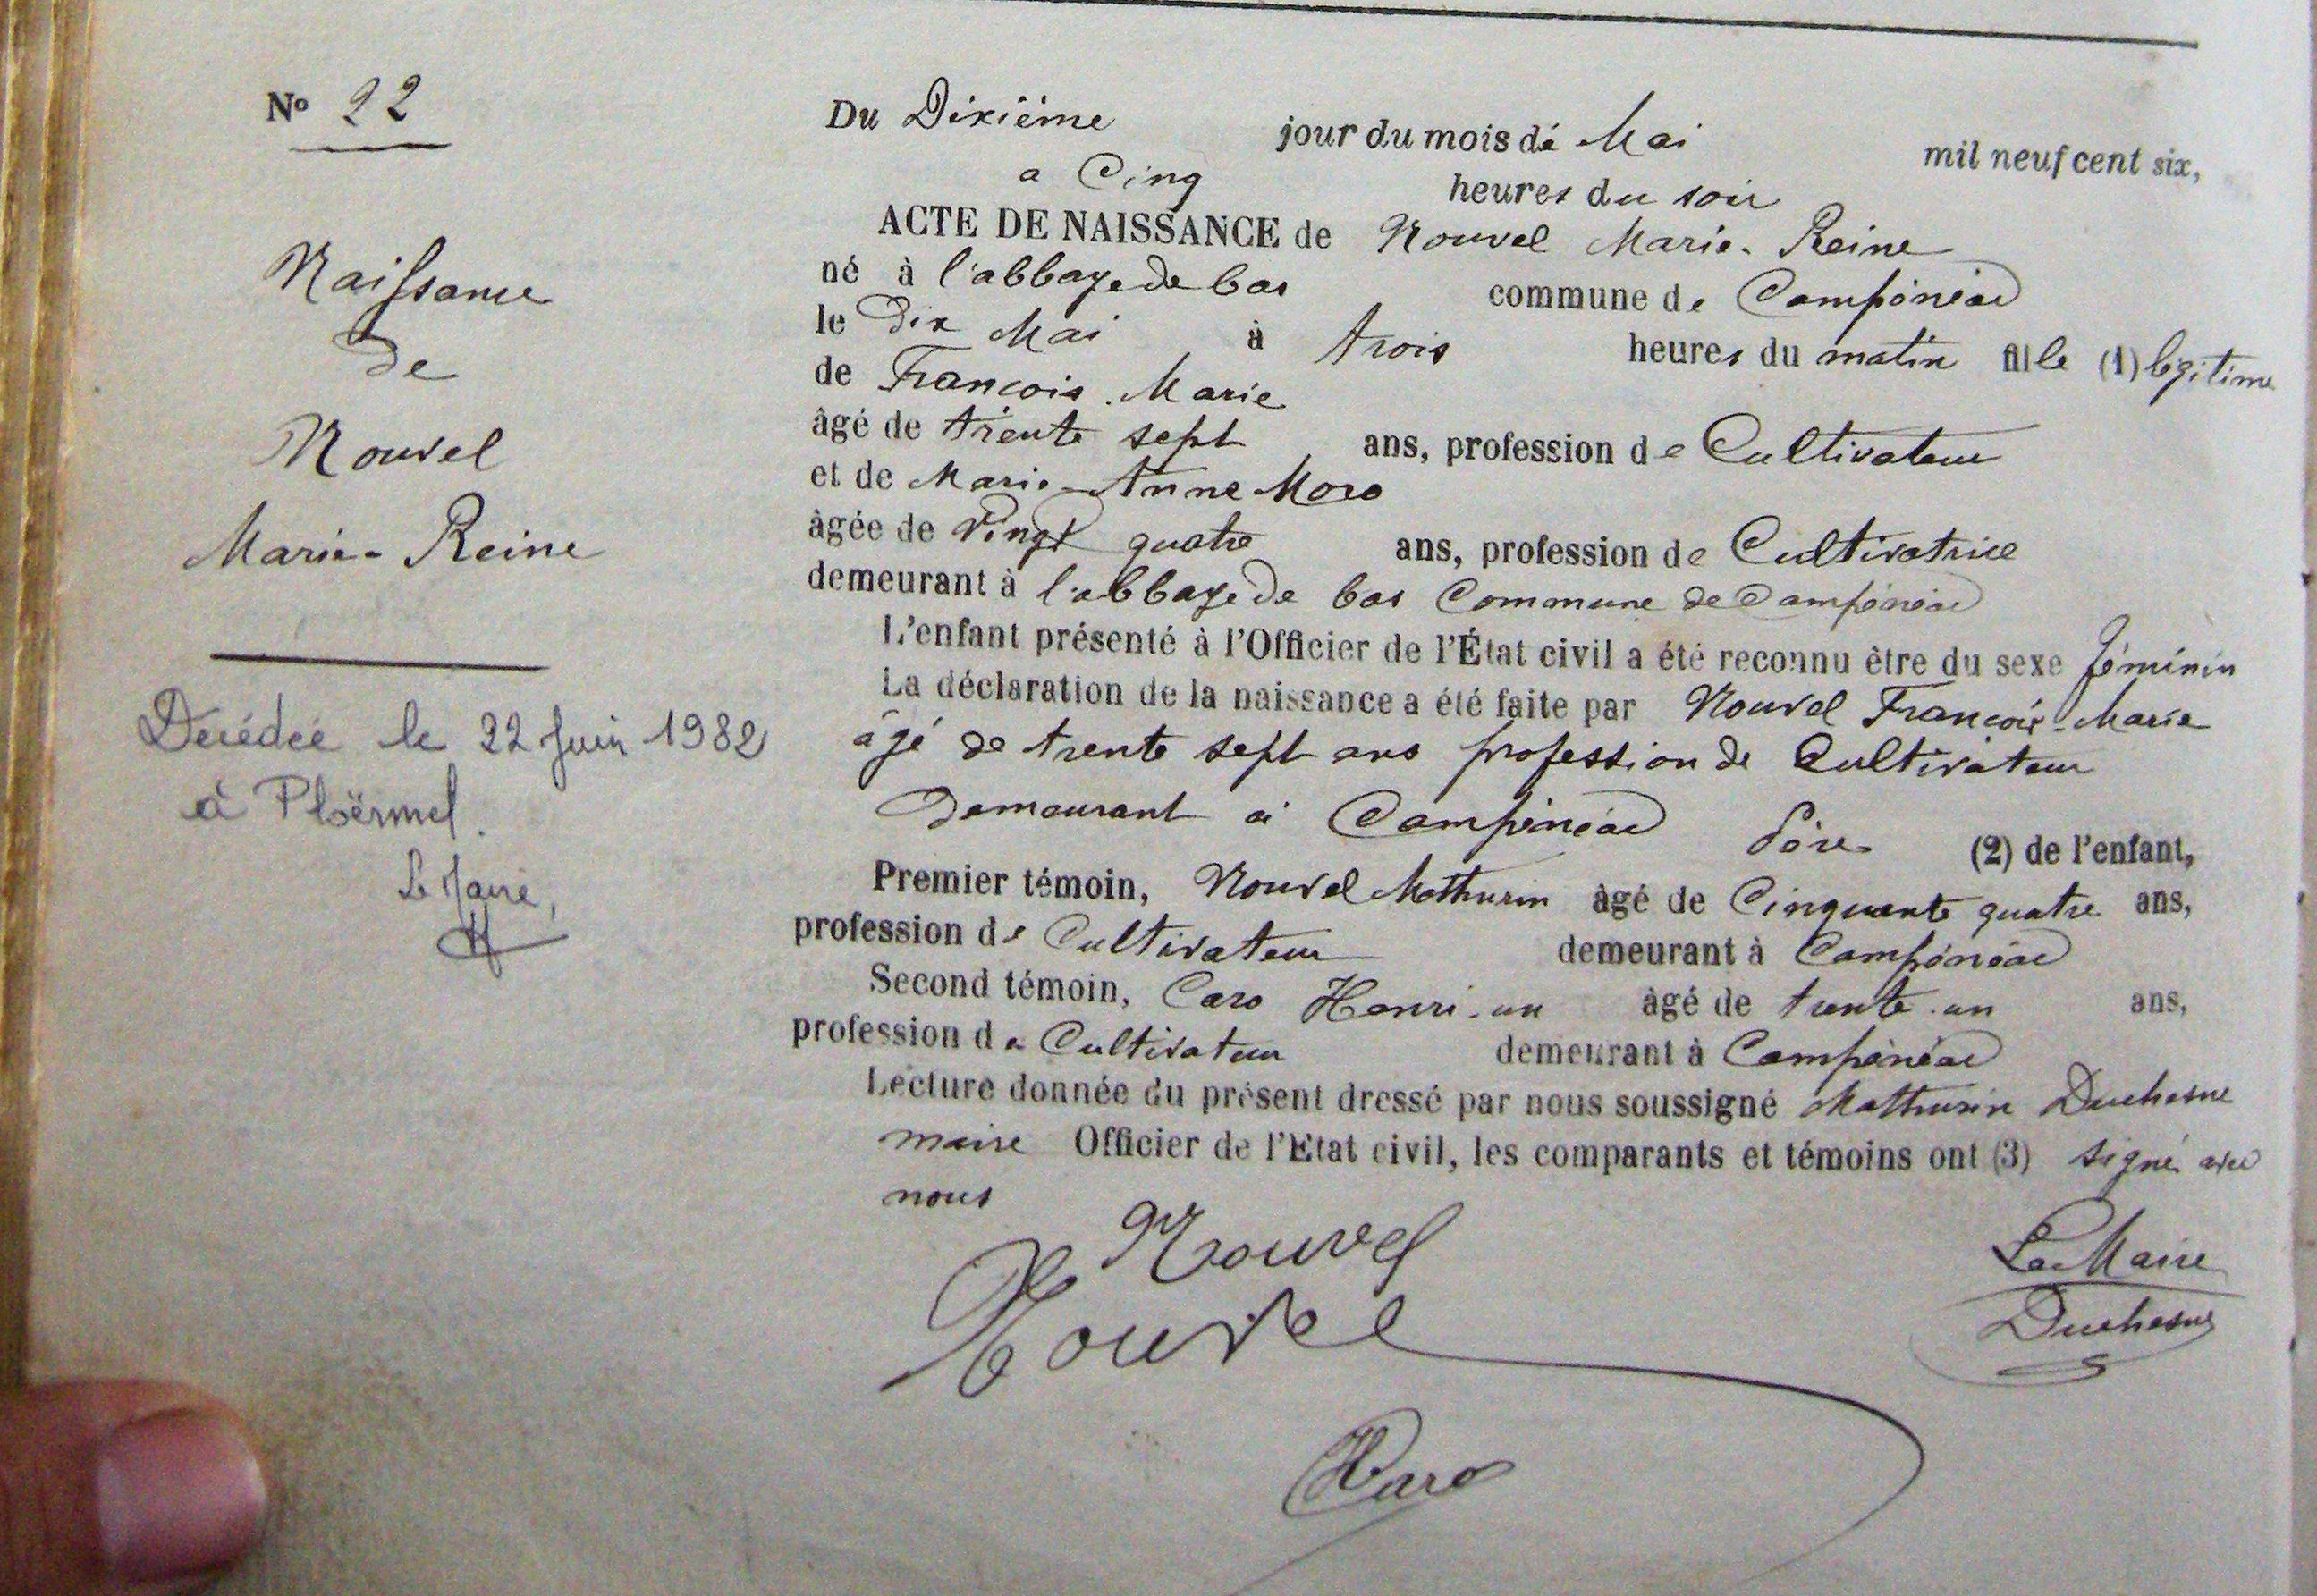 N° 22
Naissance
de
Nouvel
Marie-Reine
Decédée le 22 Juin 1982
à Ploërmel.
Le Maire,
Du Dixième jour du mois de Mai mil neuf cent six,
a Cinq heures du soir
ACTE DE NAISSANCE de Nouvel Marie-Reine
né à l'abbaye de bas commune de Campénéac
le Dix Mai à trois heures du matin fille (1) légitime
de François-Marie
âgé de trente sept ans, profession de Cultivateur
et de Marie-Anne Moro
âgée de Vingt quatre ans, profession de Cultivatrice
demeurant à l'abbaye de bas Commune de Campénéac
L'enfant présenté à l'Officier de l'État civil a été reconnu être du sexe féminin
La déclaration de la naissance a été faite par Nouvel François-Marie
âgé de trente sept ans profession de Cultivateur
Demeurant à Campénéac Père (2) de l'enfant,
Premier témoin, Nouvel Mathurin âgé de Cinquante quatre ans,
profession de Cultivateur demeurant à Campénéac
Second témoin, Caro Henri-un âgé de trente-un ans,
profession de Cultivateur demeurant à Campénéac
Lecture donnée du présent dressé par nous soussigné Mathurin Duchesne
maire Officier de l'Etat civil, les comparants et témoins ont (3) signé avec
nous
Nouvel
Nouvel
Le Maire
Duchesne
Caro